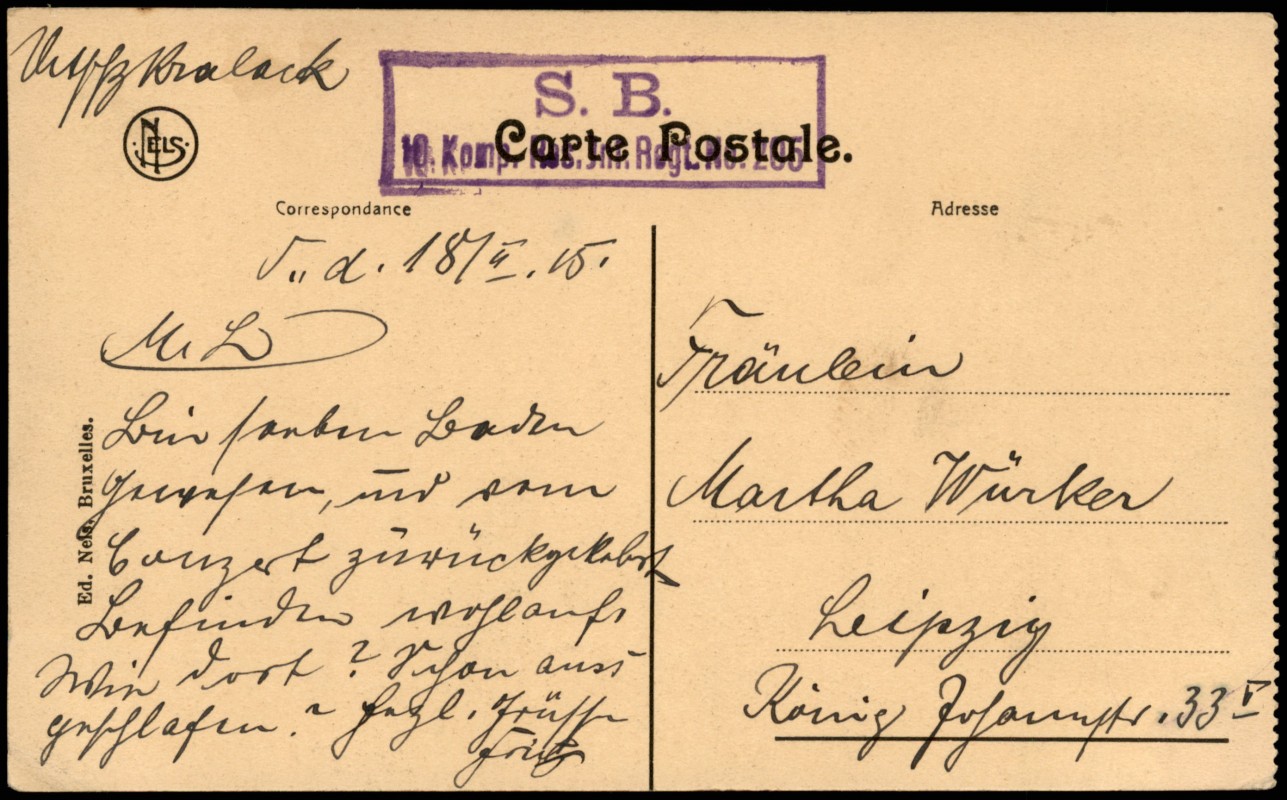 S. B.
10. Komp. Res. Inf. Regt. No. 205
Carte Postale.
NELS
Correspondance
Adresse
d. 18/II. 15.
M. L.
Bin soeben Baden
gewesen, und vom
Conzert zurückgekehrt
Befinden wohlauf.
Wie dort? Schon aus
geschlafen? Hrzl. Grüsse
Fritz
Ed. Nels, Bruxelles.
Fräulein
Martha Würker
Leipzig
König Johannstr. 33 V